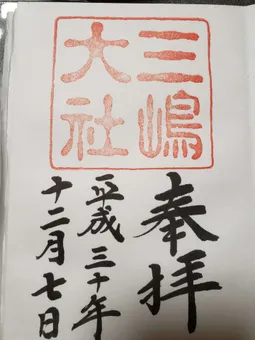 三嶋
大社
奉拝
平成三十年
十二月七日